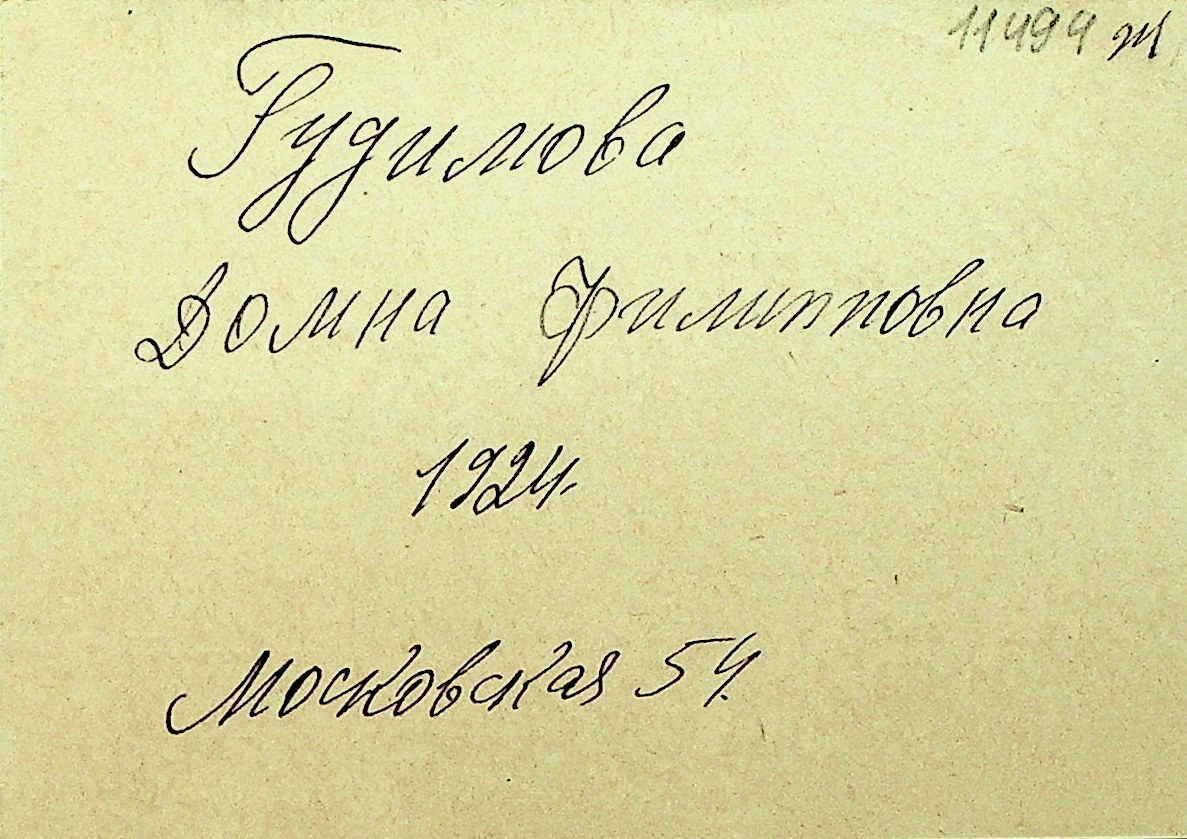 11494 ж
Гудимова
Домна Филипповна
1924.
Московская 54.